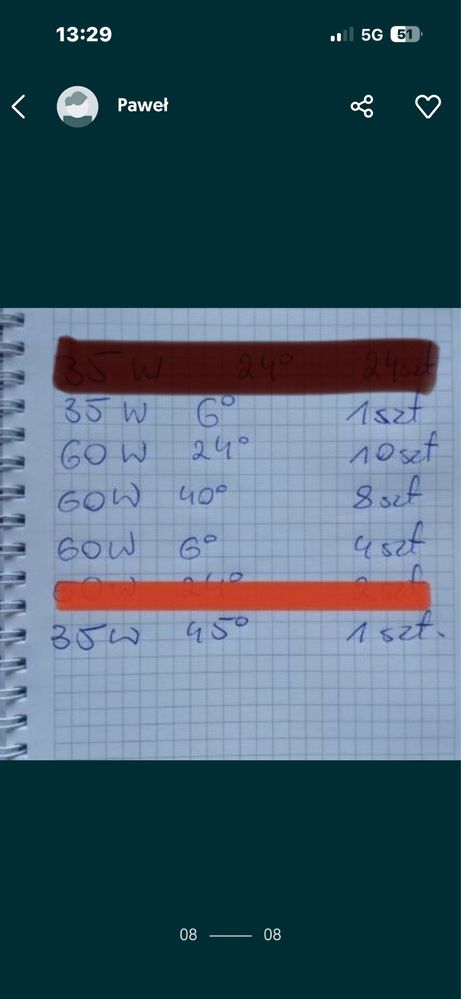 13:29 5G 51
Paweł
35 W 24° 24szt
35 W 6° 1szt
60 W 24° 10szt
60W 40° 8szt
60W 6° 4szt
60W 24° 2szt
35W 45° 1szt.
08 08